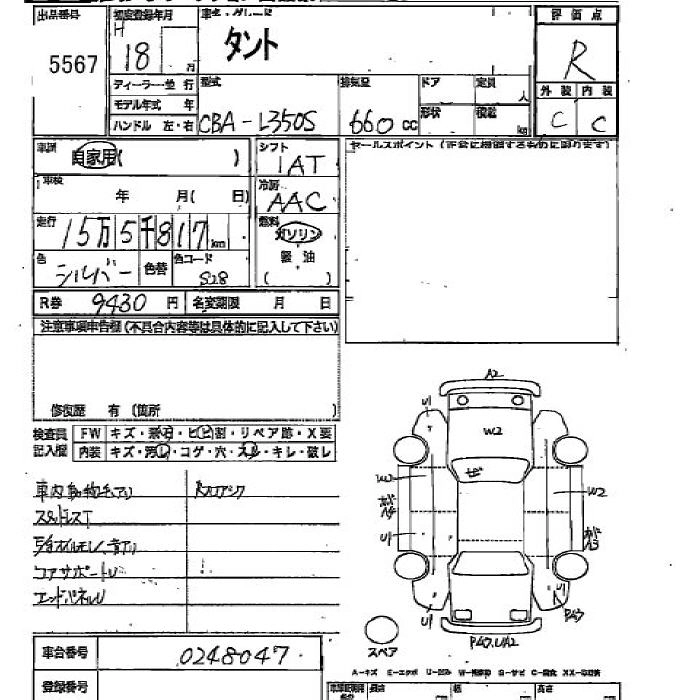 出品番号
5567
初度登録年月
H 18
年
月
車名・グレード
タント
評価点
R
外装 内装
C C
ディーラー 並行
モデル年式 年
ハンドル 左・右
型式
CBA-L350S
排気量
660 cc
ドア
形状
定員
人
積載
kg
車歴
自家用( )
シフト
IAT
セールスポイント(正常に機能するものに限ります)
車検
年 月( 日)
冷房
AAC
走行
15万5千817km
燃料
ガソリン
軽油
( )
色
シルバー
色替
色コード
S28
R券 9430 円
名変期限 月 日
注意事項申告欄(不具合内容等は具体的に記入して下さい)
修復歴 有(箇所
検査員
記入欄
FW キズ・飛石・ヒビ割・リペア跡・X要
内装 キズ・汚れ・コゲ・穴・スレ・キレ・破レ
車内動物毛アリ
スタッドレスT
コアサポートU
エンドパネルU
A2
U1
W2
W2
U1
U1
U1
スペア
車台番号
0248047
登録番号